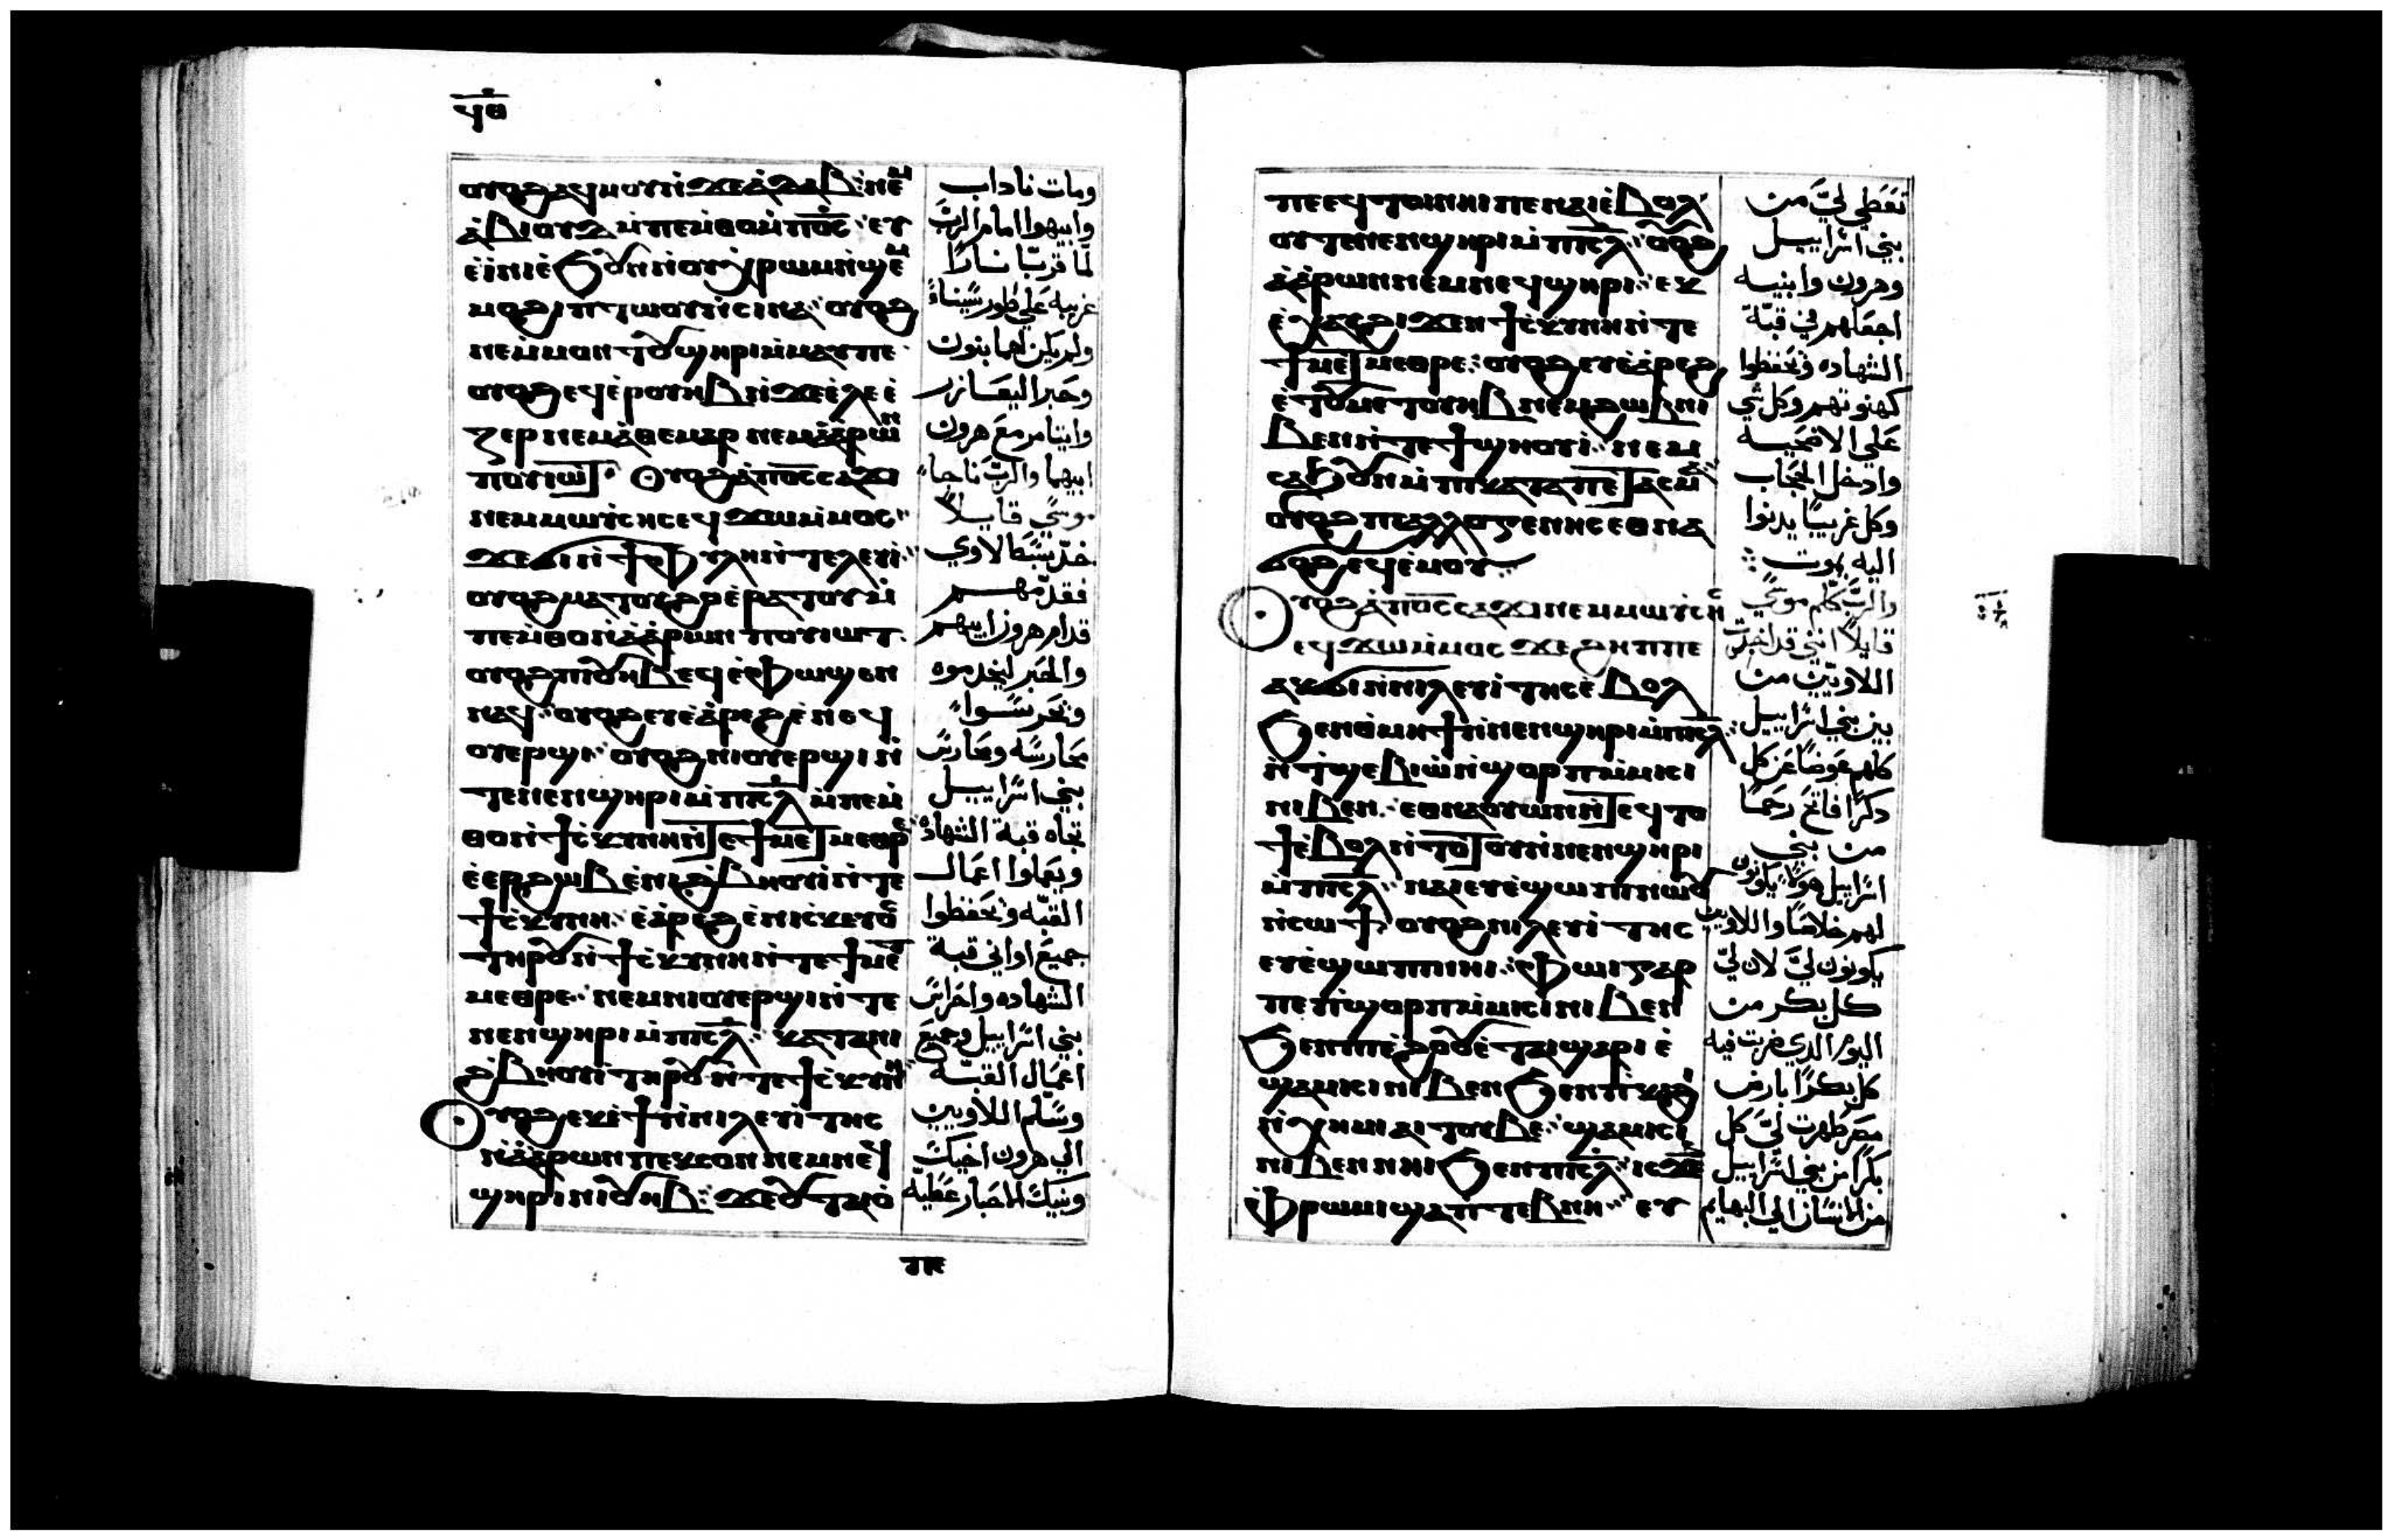 ϥⲑ
ⲟⲩⲟϩ ⲁϥⲙⲟⲩ ⲛ̀ϫⲉ ⲛⲁⲇⲁⲃ ⲛⲉⲙ
ⲁ̀ⲃⲓⲟⲩⲇ ⲙ̀ⲡⲉⲙ̀ⲑⲟ ⲙ̀ⲡⲟ̅ⲥ̅ ⲉⲩ
ⲉ̀ⲓ̀ⲛⲓ ⲉ̀ϧⲟⲩⲛ ⲛ̀ⲟⲩⲭ̀ⲣⲱⲙ ⲛ̀ϣⲉⲙ
ⲙⲟϩⲓ ⲡⲧⲱⲟⲩ ⲛ̀ⲥⲓⲛⲁ ⲟⲩⲟϩ
ⲛⲉⲙⲙⲟⲛⲧⲟⲩ ϣⲏⲣⲓ ⲙ̀ⲙⲁⲩ ⲡⲉ
ⲟⲩⲟϩ ⲉϥⲉ̀ⲣⲟⲩⲏⲃ ⲛ̀ϫⲉ ⲉ̀ⲗⲉⲉ̀
ⲍⲉⲣ ⲛⲉⲙ ⲁ̀ⲑⲉⲙⲁⲣ ⲛⲉⲙ ⲁ̀ⲁ̀ⲣⲱⲛ
ⲡⲟⲩⲓⲱⲧ Ⲟⲩⲟϩ ⲁ̀ⲡⲟ̅ⲥ̅ ⲥⲁϫⲓ
ⲛⲉⲙ ⲙⲱⲩ̀ⲥⲏⲥ ⲉϥϫⲱ ⲙ̀ⲙⲟⲥ
ϫⲉ ϭⲓ ⲛ̀ϯⲫⲩⲗⲏ ⲛ̀ⲧⲉ ⲗⲉⲩⲓ̀
ⲟⲩⲟϩ ⲙⲁⲧⲟⲩⲟ̀ϩⲓ ⲉ̀ⲣⲁⲧⲟⲩ ⲙ̀
ⲡⲉⲙ̀ⲑⲟ ⲛ̀ⲁ̀ⲁ̀ⲣⲱⲛ ⲡⲟⲩⲓⲱⲧ
ⲟⲩⲟϩ ⲡⲟⲩⲏⲃ ⲉϥⲉ̀ⲫⲱϣⲉⲛ
ⲛⲁϥ ⲟⲩⲟϩ ⲉⲩⲉ̀ⲁ̀ⲣⲉϩ ⲉ̀ⲛⲉϥ
ⲟⲩⲉⲣϣⲓ ⲟⲩⲟϩ ⲛⲓⲟⲩⲉⲣϣⲓ ⲛ̀
ⲧⲉ ⲛⲉⲛϣⲏⲣⲓ ⲙ̀ⲡⲓ̅ⲥ̅ⲗ̅ ⲙ̀ⲡⲉⲙ̀
ⲑⲟ ⲛ̀ϯⲥ̀ⲕⲩⲛⲏ ⲛ̀ⲧⲉ ϯⲙⲉⲧⲙⲉⲑⲣⲉ
ⲉ̀ⲉⲣϩⲱⲃ ⲉ̀ⲛⲓϩ̀ⲃⲏⲟⲩⲓ̀ ⲛ̀ⲧⲉ
ϯⲥ̀ⲕⲩⲛⲏ ⲉ̀ⲁ̀ⲣⲉϩ ⲉ̀ⲛⲓⲥ̀ⲕⲉⲩⲟⲥ
ⲧⲏⲣⲟⲩ ⲛ̀ϯⲥ̀ⲕⲩⲛⲏ ⲛ̀ⲧⲉ ϯⲙⲉⲧ
ⲙⲉⲑⲣⲉ ⲛⲉⲙ ⲛⲓⲟⲩⲉⲣϣⲓ ⲛ̀ⲧⲉ
ⲛⲉⲛϣⲏⲣⲓ ⲙ̀ⲡⲓ̅ⲥ̅ⲗ̅ ⲕⲁⲧⲁ ⲛⲓ
ϩ̀ⲃⲏⲟⲩⲓ̀ ⲧⲏⲣⲟⲩ ⲛ̀ⲧⲉ ϯⲥ̀ⲕⲩⲛⲏ
Ⲟⲩⲟϩ ⲉⲕⲉ̀ϯ ⲛ̀ⲛⲓⲗⲉⲩⲓ̀ⲧⲏⲥ
ⲛ̀ⲁ̀ⲁ̀ⲣⲱⲛ ⲡⲉⲕⲥⲟⲛ ⲛⲉⲙ ⲛⲉϥ
ϣⲏⲣⲓ ⲛⲓⲟⲩⲏⲃ ϫⲉ ⲟⲩⲧⲁⲓⲟ̀
ومات ناداب
وابيهوا امام الرب
لما قربا نارا
غريبه علي طور سيناء
ولم يكن لهما بنون
وحبر اليعازر
وايتامر مع هرون
ابيهما والرب ناجا
موسي قايلا
خد سبط لاوي
فقدمهم
قدام هرون ابيهم
والحبر ليخدموه
ونحرسوا
محارسه ومحارس
بني اسراييل
تجاه قبة الشهاده
ويعملوا اعمال
القبه ونحفظوا
جميع اواني قبة
الشهاده واحراس
بني اسراييل وجميع
اعمال القبه
وسلم اللاويين
الي هرون اخيك
وبنيك الاحبار عطيه
ⲡⲉ ⲉϥⲧⲟⲓ ⲛⲏⲓ ⲡⲉ ⲛⲁⲓ ⲉ̀ⲃⲟⲗ
ⲟⲩⲧⲉ ⲛⲉⲛϣⲏⲣⲓ ⲙ̀ⲡⲓ̅ⲥ̅ⲗ̅ ⲟⲩⲟϩ
ⲁ̀ⲁ̀ⲣⲱⲛ ⲛⲉⲙ ⲛⲉϥϣⲏⲣⲓ ⲉⲕ
ⲉ̀ⲭⲁⲩ ϩⲓϫⲉⲛ ϯⲥ̀ⲕⲩⲛⲏ ⲛ̀ⲧⲉ
ϯⲙⲉⲧⲙⲉⲑⲣⲉ ⲟⲩⲟϩ ⲉⲩⲉ̀ⲁ̀ⲣⲉϩ
ⲉ̀ⲧⲟⲩⲙⲉⲧⲟⲩⲏⲃ ⲛⲉⲙ ϩⲱⲃ ⲛⲓ
ⲃⲉⲛ ⲛ̀ⲧⲉ ϯϣⲏⲟⲩⲓ̀ ⲛⲉⲙ
ⲥⲁϧⲟⲩⲛ ⲙ̀ⲡⲓⲕⲁⲧⲁⲡⲉⲧⲁⲥⲙⲁ
ⲟⲩⲟϩ ⲡⲓⲁⲗⲗⲟⲅⲉⲛⲏⲥ ⲉⲑⲛⲁ
ϭⲟϩ ⲉϥⲉ̀ⲙⲟⲩ
Ⲟⲩⲟϩ ⲁ̀ⲡⲟ̅ⲥ̅ ⲥⲁϫⲓ ⲛⲉⲙ ⲙⲱⲩ̀ⲥⲏⲥ
ⲉϥϫⲱ ⲙ̀ⲙⲟⲥ ϫⲉ ϩⲏⲡⲡⲉ
ⲁⲕϭⲓ ⲛ̀ⲛⲓⲗⲉⲩⲓ̀ⲧⲏⲥ ⲉ̀ⲃⲟⲗ
ϧⲉⲛ ⲑ̀ⲙⲏϯ ⲛ̀ⲛⲉⲛϣⲏⲣⲓ ⲙ̀ⲡⲓ̅ⲥ̅ⲗ̅
ⲛ̀ⲧ̀ϣⲉⲃⲓⲱ̀ ⲛ̀ϣⲟⲣⲡ ⲙ̀ⲙⲓⲥⲓ
ⲛⲓⲃⲉⲛ ⲉⲑⲛⲁⲟⲩⲱⲛ ⲛ̀ⲧⲉϥⲧⲟ
ϯ ⲉ̀ⲃⲟⲗ ⲛ̀ⲧⲟⲧⲟⲩ ⲛ̀ⲛⲉⲛϣⲏⲣⲓ
ⲙ̀ⲡⲓ̅ⲥ̅ⲗ̅ ⲛⲁⲓ ⲉⲩⲉ̀ϣⲱⲡⲓ ⲛⲱⲟⲩ
ⲛ̀ⲥⲱϯ ⲟⲩⲟϩ ⲛⲓⲗⲉⲩⲓ̀ⲧⲏⲥ
ⲉⲩⲉ̀ϣⲱⲡⲓ ⲛⲏⲓ ⲫⲱⲓ ⲅⲁⲣ
ⲡⲉ ⲡⲓϣⲟⲣⲡ ⲙ̀ⲙⲓⲥⲓ ⲛⲓⲃⲉⲛ
ϧⲉⲛ ⲡⲓⲉ̀ϩⲟⲟⲩ ⲉ̀ⲧⲁⲓϣⲁⲣⲓ ⲉ̀
ϣⲁⲙⲓⲥⲓ ⲛⲓⲃⲉⲛ ϧⲉⲛ ⲡ̀ⲕⲁϩⲓ
ⲛ̀ⲭⲏⲙⲓ ⲁⲓⲧⲟⲩⲃⲉ ϣⲁⲙⲓⲥⲓ
ⲛⲓⲃⲉⲛ ⲛⲏⲓ ϧⲉⲛ ⲡⲓ̅ⲥ̅ⲗ̅ ⲓⲥϫⲉⲛ
ⲫ̀ⲣⲱⲙⲓ ϣⲁ ⲡⲓⲧⲉⲃⲛⲏ ⲉⲩ
تعطي لي من
بني اسراييل
وهرون وابنيه
اجعلهم في قبة
الشهاده ونحفظوا
كهنوتهم وكل شي
علي الاضحيه
وادخل الحجاب
وكل غريبا يدنوا
اليه يموت
والرب كلم موسي
قايلا انني قد اخدت
اللاويين من
بين بني اسراييل
كلهم عوضا عن كل
دكرا فاتح رحما
من بني
اسراييل هولا يكونون
لهم خلاصا واللاويين
يكونون لي لان لي
كل بكر من
اليوم الدي ضربت فيه
كل بكرا بارض
مصر طهرت لي كل
بكرا من بني اسراييل
من الانسان الي البهايم